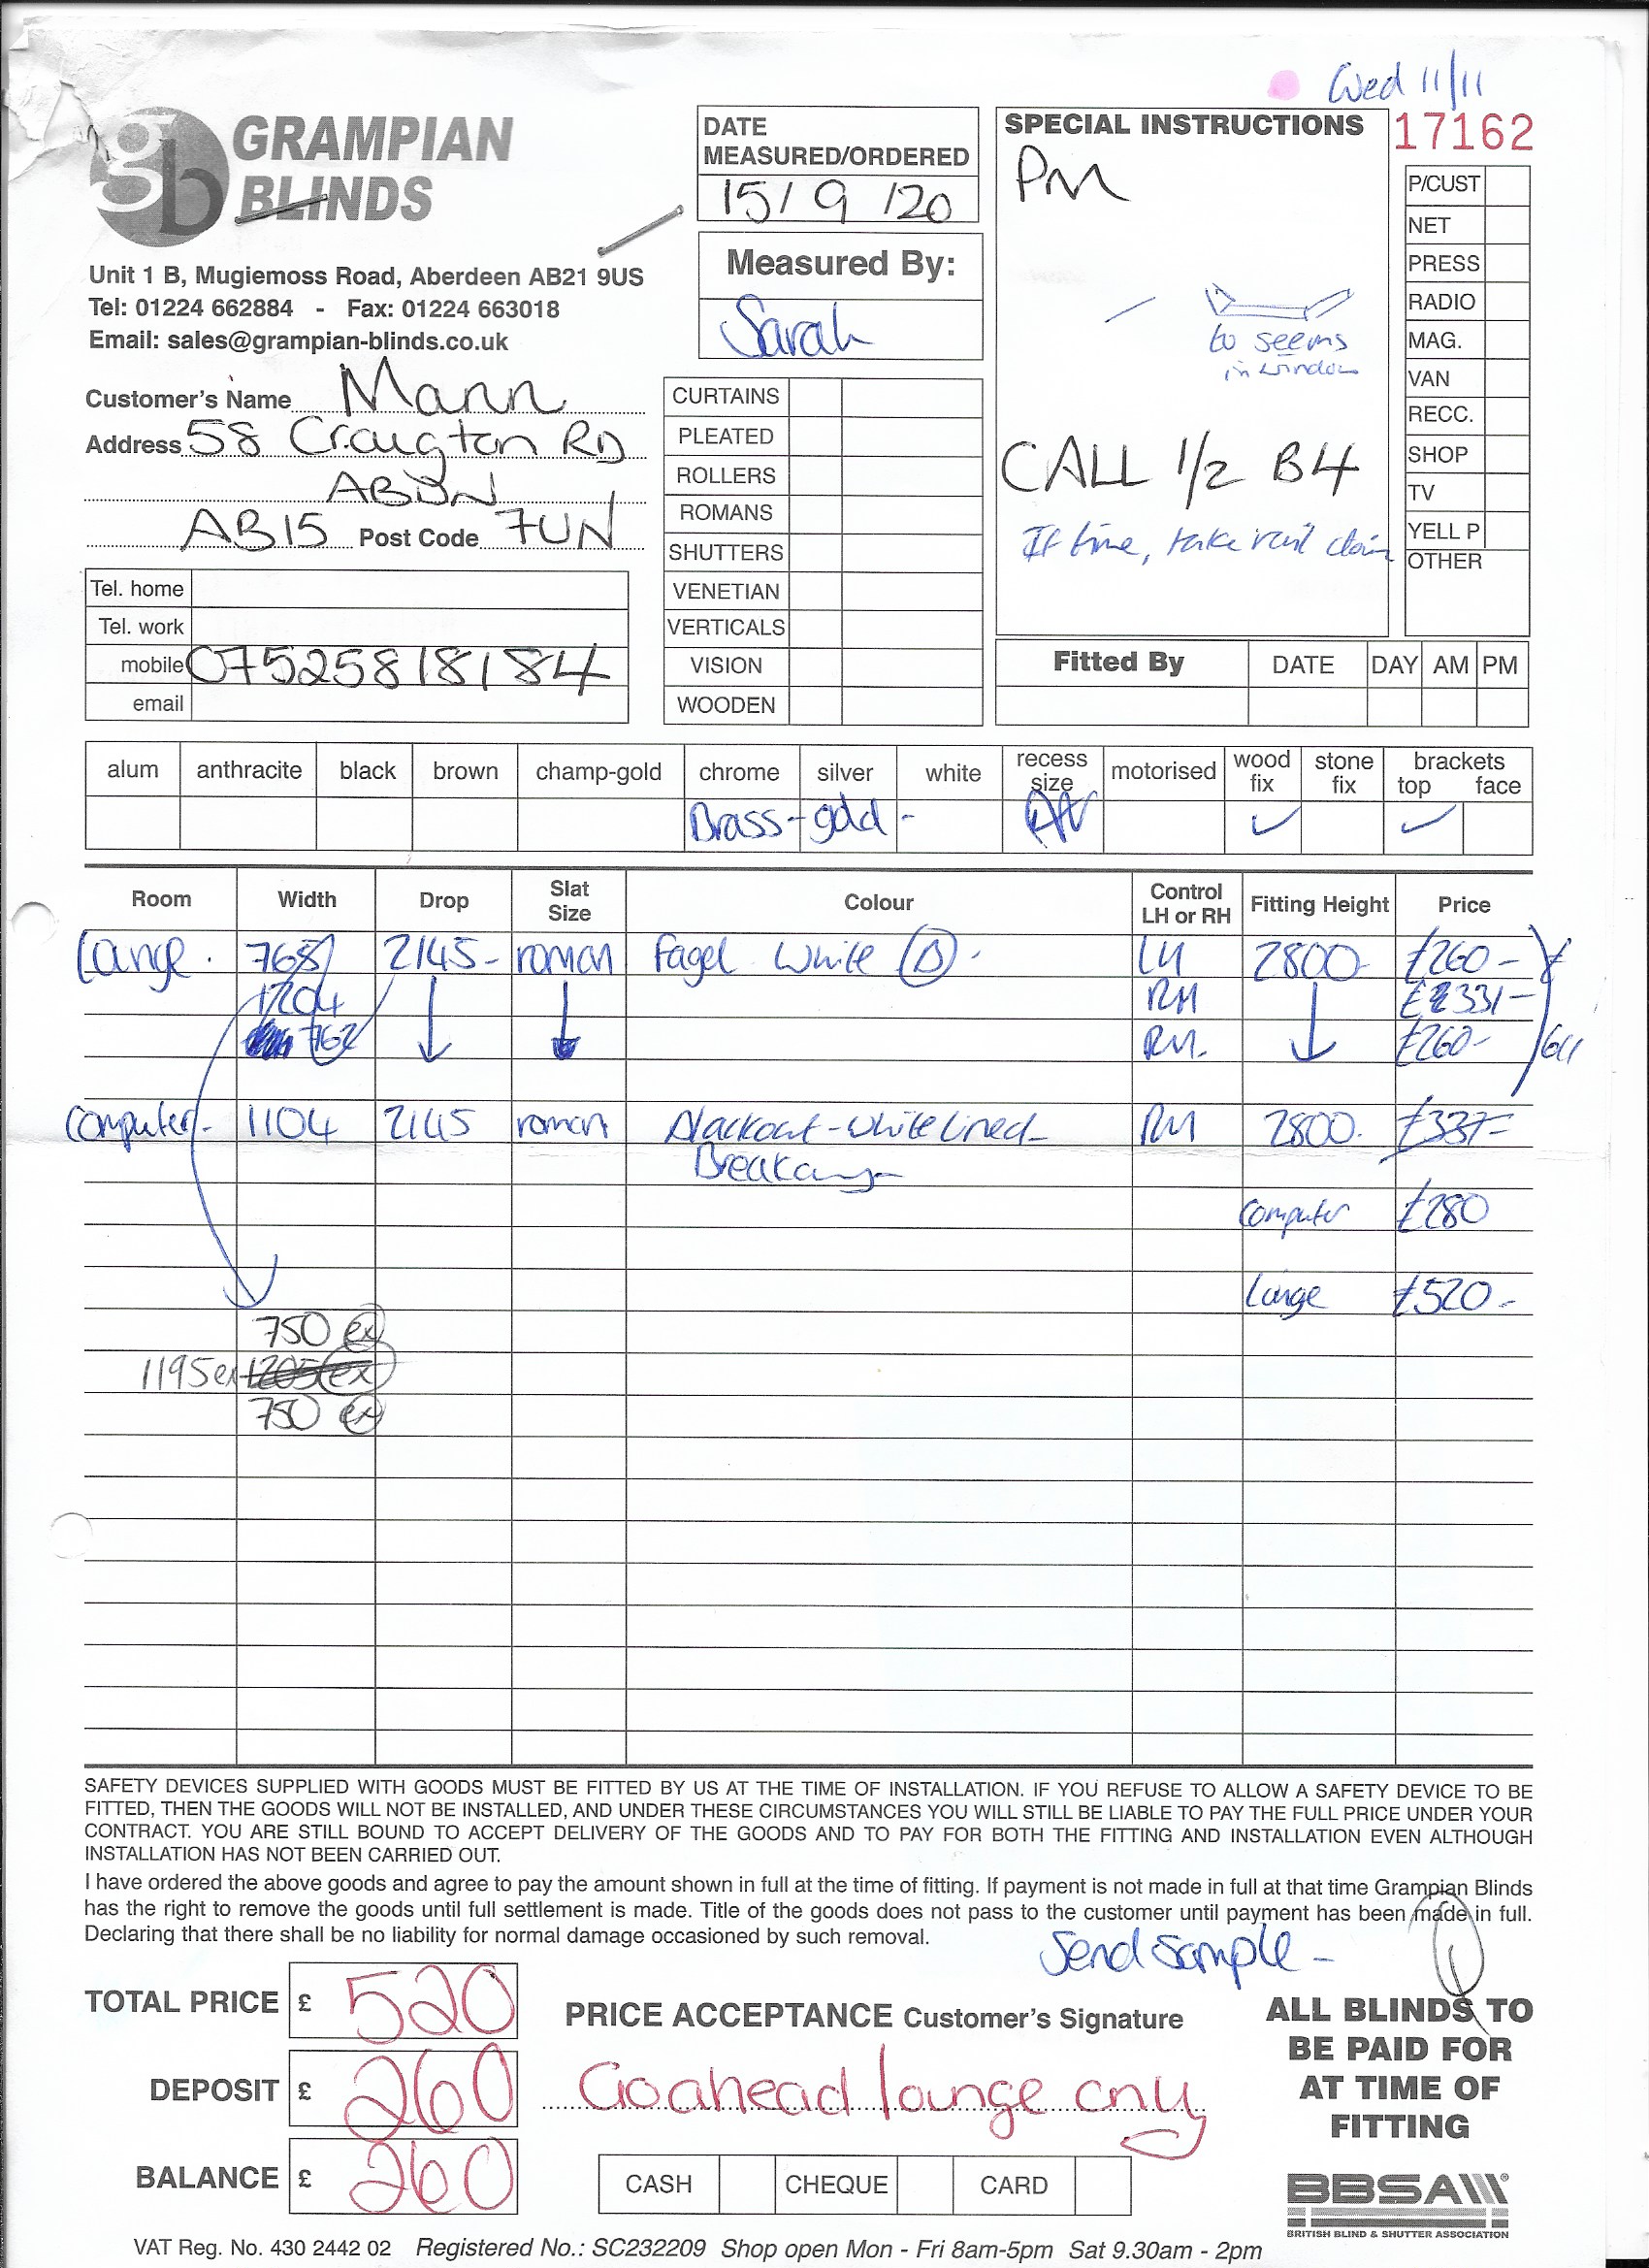 Wed 11/11
17162
gb GRAMPIAN
BLINDS
Unit 1 B, Mugiemoss Road, Aberdeen AB21 9US
Tel: 01224 662884 - Fax: 01224 663018
Email: sales@grampian-blinds.co.uk
Customer's Name Mann
Address 58 Craigton RD
ABDN
AB15 Post Code 7UN
Tel. home
Tel. work
mobile 07525818184
email
DATE
MEASURED/ORDERED
15/9/20
Measured By:
Sarah
CURTAINS
PLEATED
ROLLERS
ROMANS
SHUTTERS
VENETIAN
VERTICALS
VISION
WOODEN
SPECIAL INSTRUCTIONS
PM
to seems
in window
CALL 1/2 B4
If time, take
P/CUST
NET
PRESS
RADIO
MAG.
VAN
RECC.
SHOP
TV
YELL P
OTHER
Fitted By DATE DAY AM PM
alum anthracite black brown champ-gold chrome silver white recess size motorised wood fix stone fix brackets top face
Brass-gold-
Room Width Drop Slat Size Colour Control LH or RH Fitting Height Price
Lounge. 768 2145- roman Fagel White (D). LH 2800 £260-
1204 RH £331-
762 RH. £260-
Computer- 1104 2145 roman Blackout-White Lined- RH 2800. £337-
Breakaway
Computer £280
Lounge £520-
750 ex
1195 ex 1205 ex
750 ex
SAFETY DEVICES SUPPLIED WITH GOODS MUST BE FITTED BY US AT THE TIME OF INSTALLATION. IF YOU REFUSE TO ALLOW A SAFETY DEVICE TO BE
FITTED, THEN THE GOODS WILL NOT BE INSTALLED, AND UNDER THESE CIRCUMSTANCES YOU WILL STILL BE LIABLE TO PAY THE FULL PRICE UNDER YOUR
CONTRACT. YOU ARE STILL BOUND TO ACCEPT DELIVERY OF THE GOODS AND TO PAY FOR BOTH THE FITTING AND INSTALLATION EVEN ALTHOUGH
INSTALLATION HAS NOT BEEN CARRIED OUT.
I have ordered the above goods and agree to pay the amount shown in full at the time of fitting. If payment is not made in full at that time Grampian Blinds
has the right to remove the goods until full settlement is made. Title of the goods does not pass to the customer until payment has been made in full.
Declaring that there shall be no liability for normal damage occasioned by such removal.
Send Sample -
TOTAL PRICE £ 520
DEPOSIT £ 260
BALANCE £ 260
PRICE ACCEPTANCE Customer's Signature
Goahead lounge only
CASH CHEQUE CARD
ALL BLINDS TO
BE PAID FOR
AT TIME OF
FITTING
BBSA
BRITISH BLIND & SHUTTER ASSOCIATION
VAT Reg. No. 430 2442 02 Registered No.: SC232209 Shop open Mon - Fri 8am-5pm Sat 9.30am - 2pm